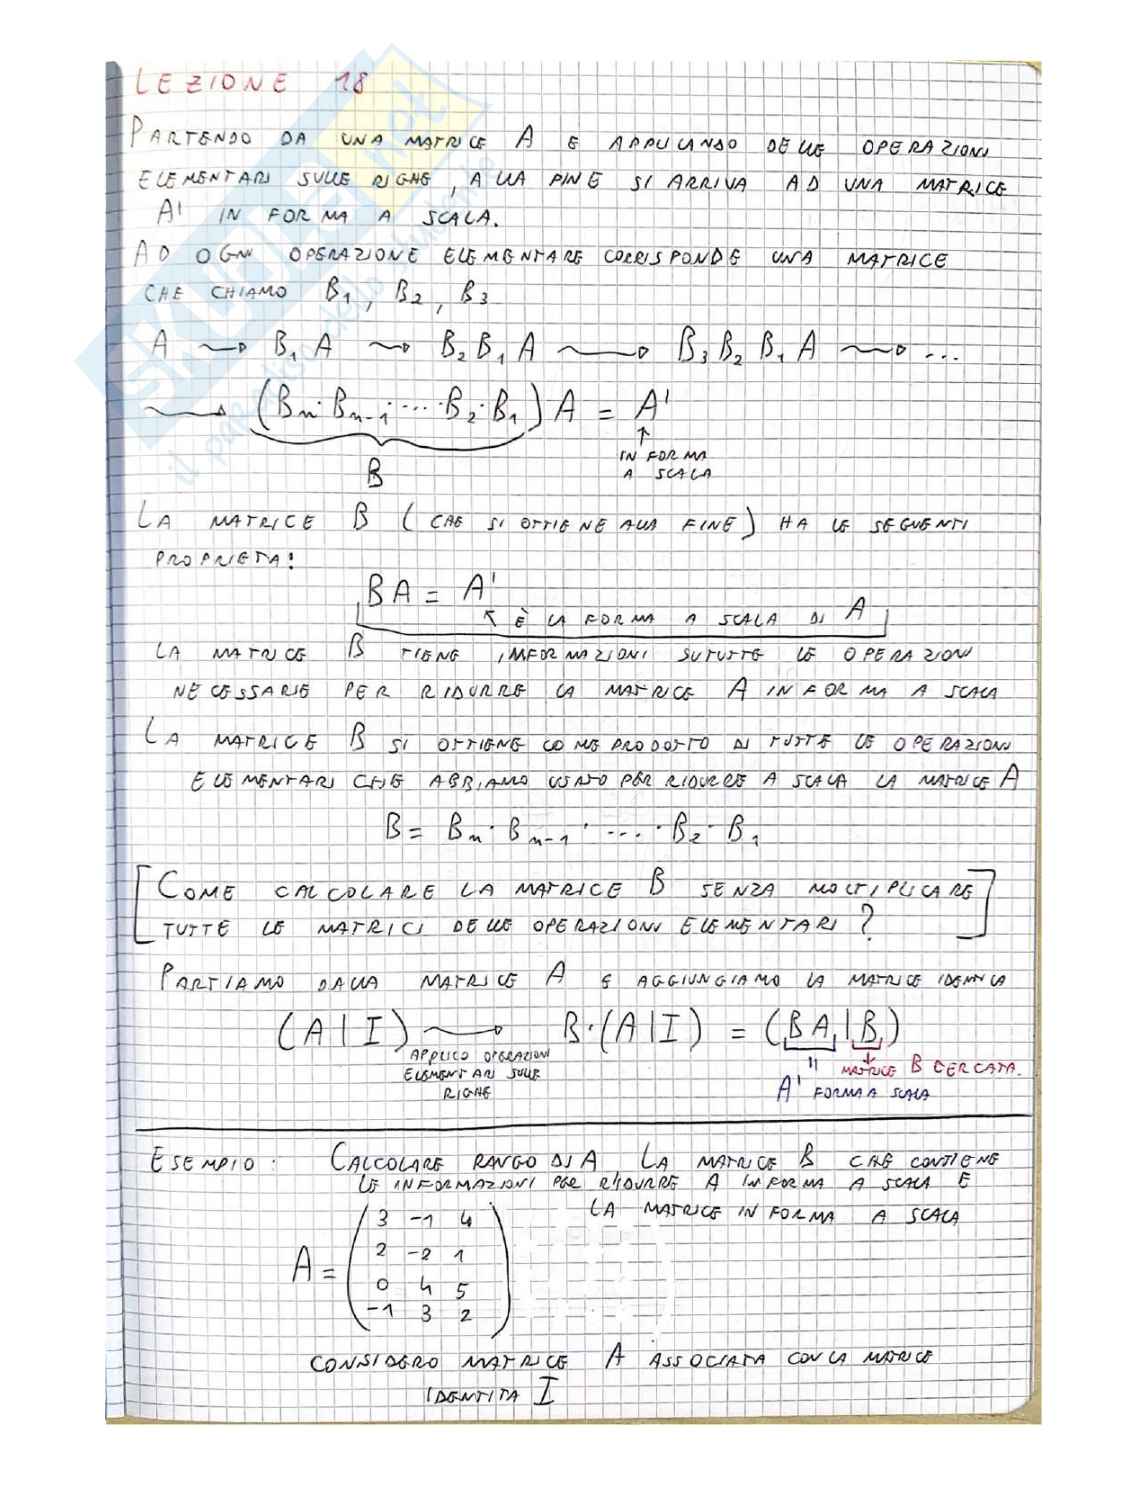 LEZIONE 18
PARTENDO DA UNA MATRICE A E APPLICANDO DELLE OPERAZIONI
ELEMENTARI SULLE RIGHE, ALLA FINE SI ARRIVA AD UNA MATRICE
A' IN FORMA A SCALA.
AD OGNI OPERAZIONE ELEMENTARE CORRISPONDE UNA MATRICE
CHE CHIAMO B₁, B₂, B₃
A ⇝ B₁A ⇝ B₂B₁A ⇝ B₃B₂B₁A ⇝ ...
⇝ (Bₙ·Bₙ₋₁·...·B₂·B₁)A = A'
B
↑
IN FORMA
A SCALA
LA MATRICE B (CHE SI OTTIENE ALLA FINE) HA LE SEGUENTI
PROPRIETA:
BA = A'
↖ È LA FORMA A SCALA DI A
LA MATRICE B TIENE INFORMAZIONI SU TUTTE LE OPERAZIONI
NECESSARIE PER RIDURRE LA MATRICE A IN FORMA A SCALA
LA MATRICE B SI OTTIENE COME PRODOTTO DI TUTTE LE OPERAZIONI
ELEMENTARI CHE ABBIAMO USATO PER RIDURRE A SCALA LA MATRICE A
B = Bₙ·Bₙ₋₁·...·B₂·B₁
[COME CALCOLARE LA MATRICE B SENZA MOLTIPLICARE
TUTTE LE MATRICI DELLE OPERAZIONI ELEMENTARI?]
PARTIAMO DALLA MATRICE A E AGGIUNGIAMO LA MATRICE IDENTICA
(A|I) ⇝ B·(A|I) = (BA|B)
APPLICO OPERAZIONI
ELEMENTARI SULLE
RIGHE
MATRICE B CERCATA.
A' FORMA A SCALA
ESEMPIO: CALCOLARE RANGO DI A LA MATRICE B CHE CONTIENE
LE INFORMAZIONI PER RIDURRE A IN FORMA A SCALA E
LA MATRICE IN FORMA A SCALA
3 -1 4
2 -2 1
A =
0 4 5
-1 3 2
CONSIDERO MATRICE A ASSOCIATA CON LA MATRICE
IDENTITA I
SKUOLA.net